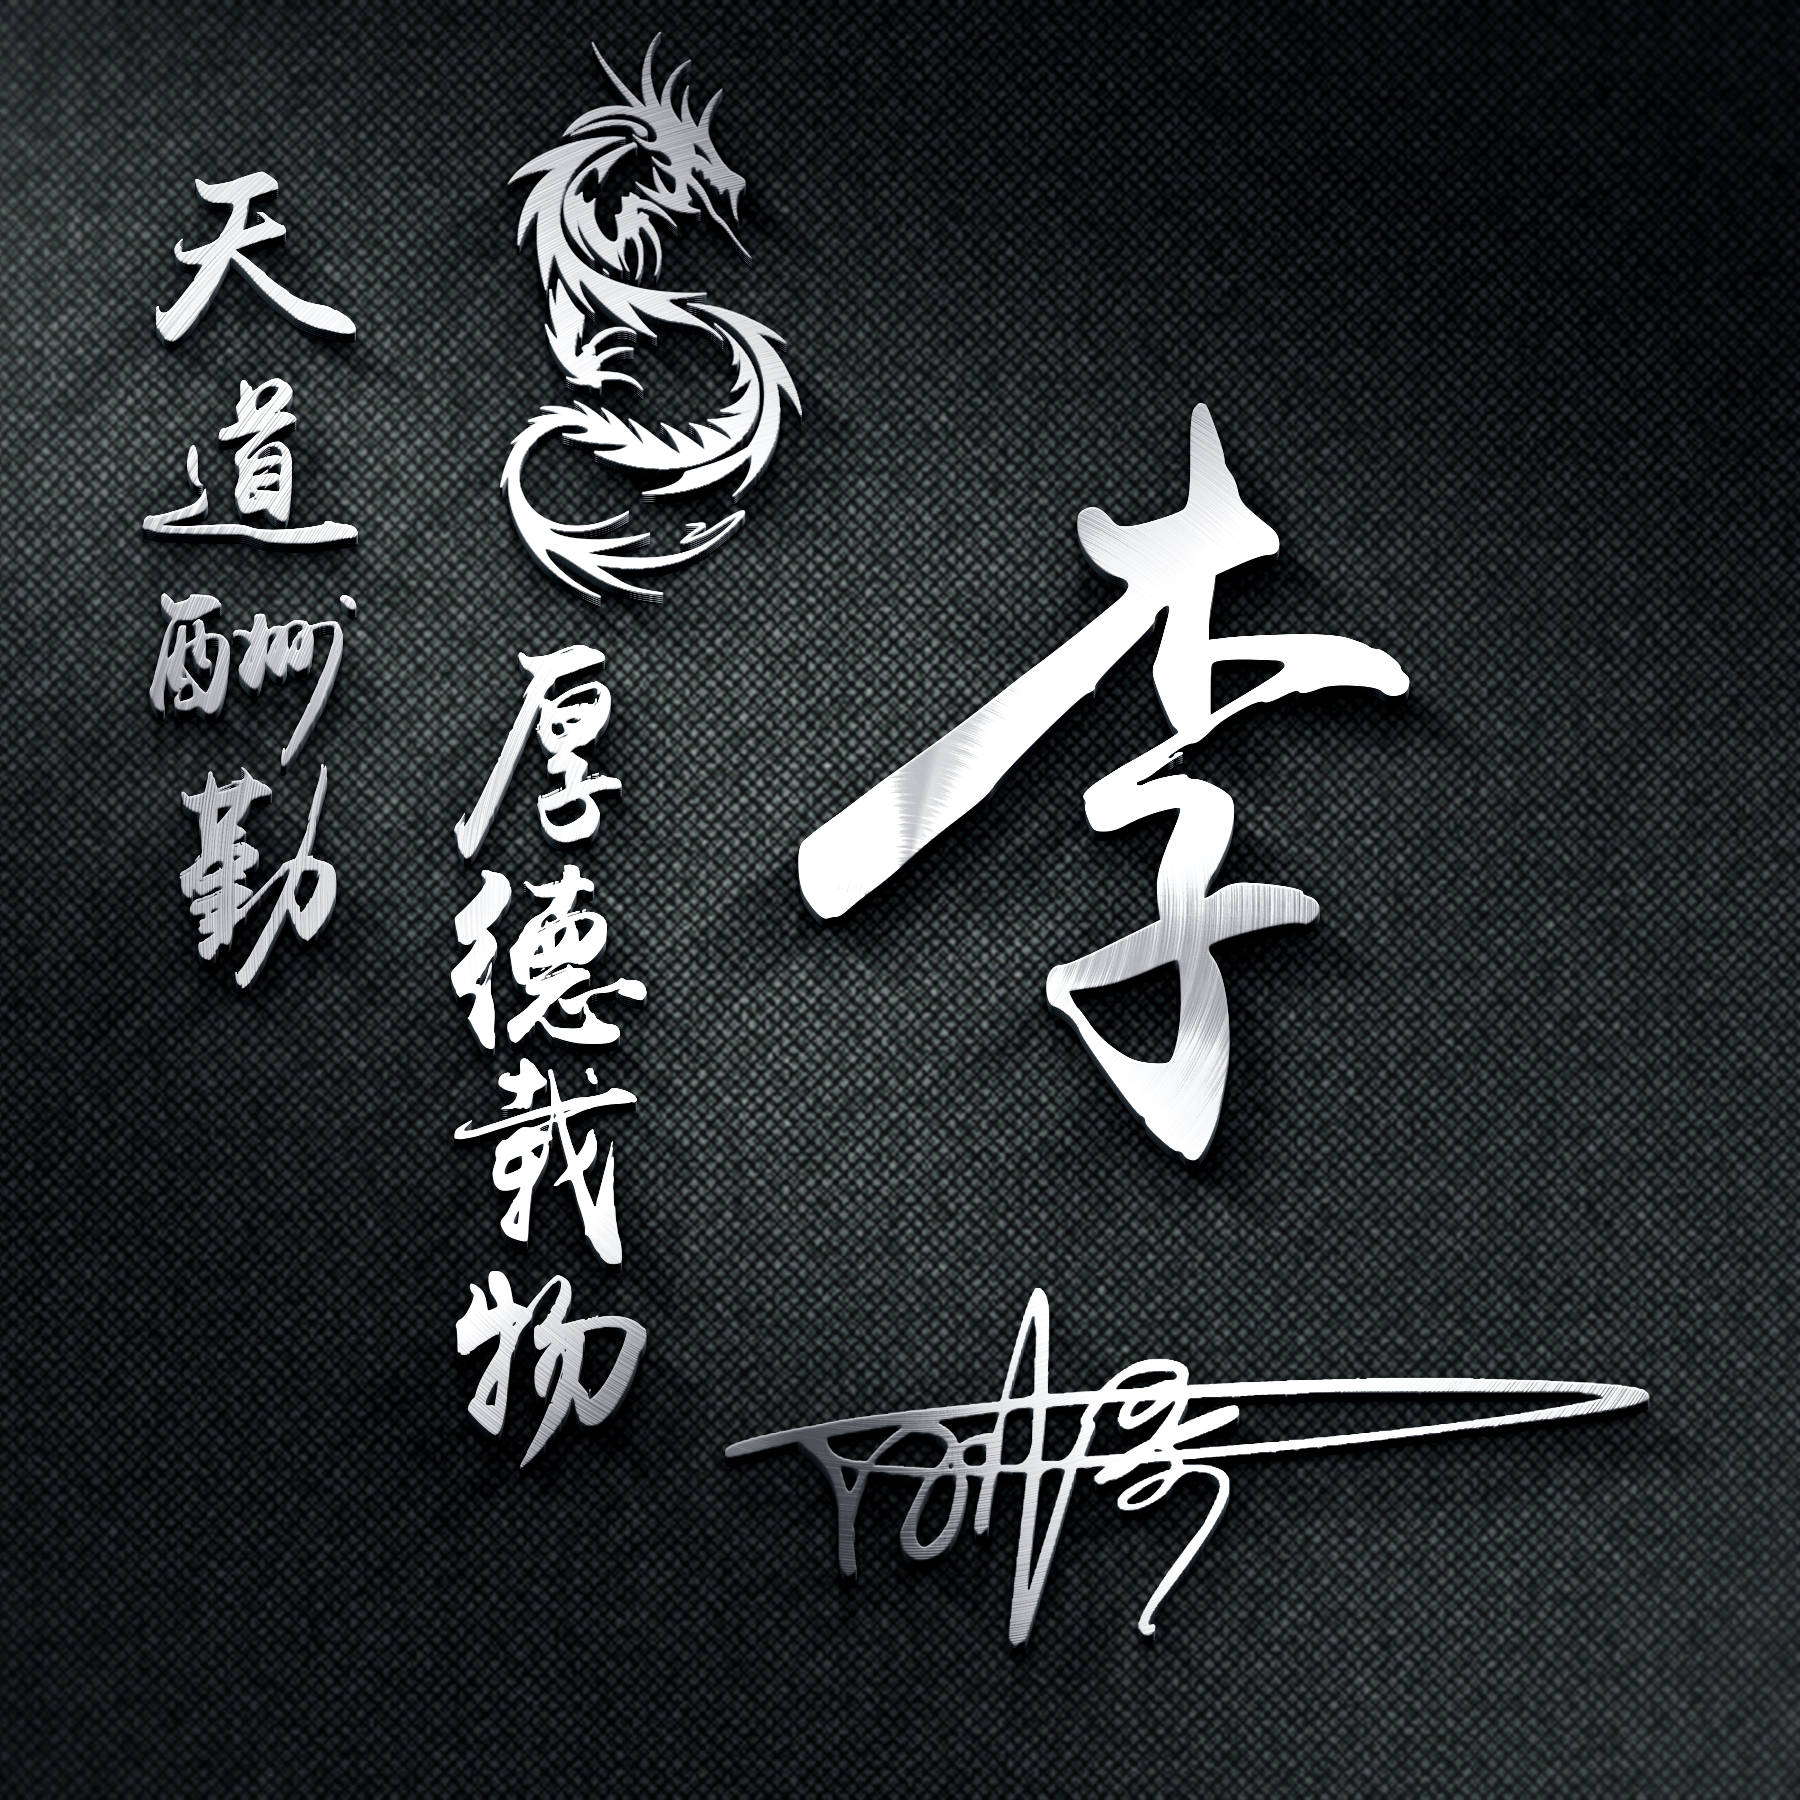 天道酬勤
厚德載物
李